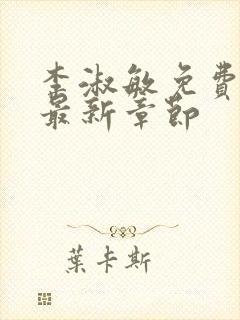 李淑敏免費
最新章節
葉卡斯